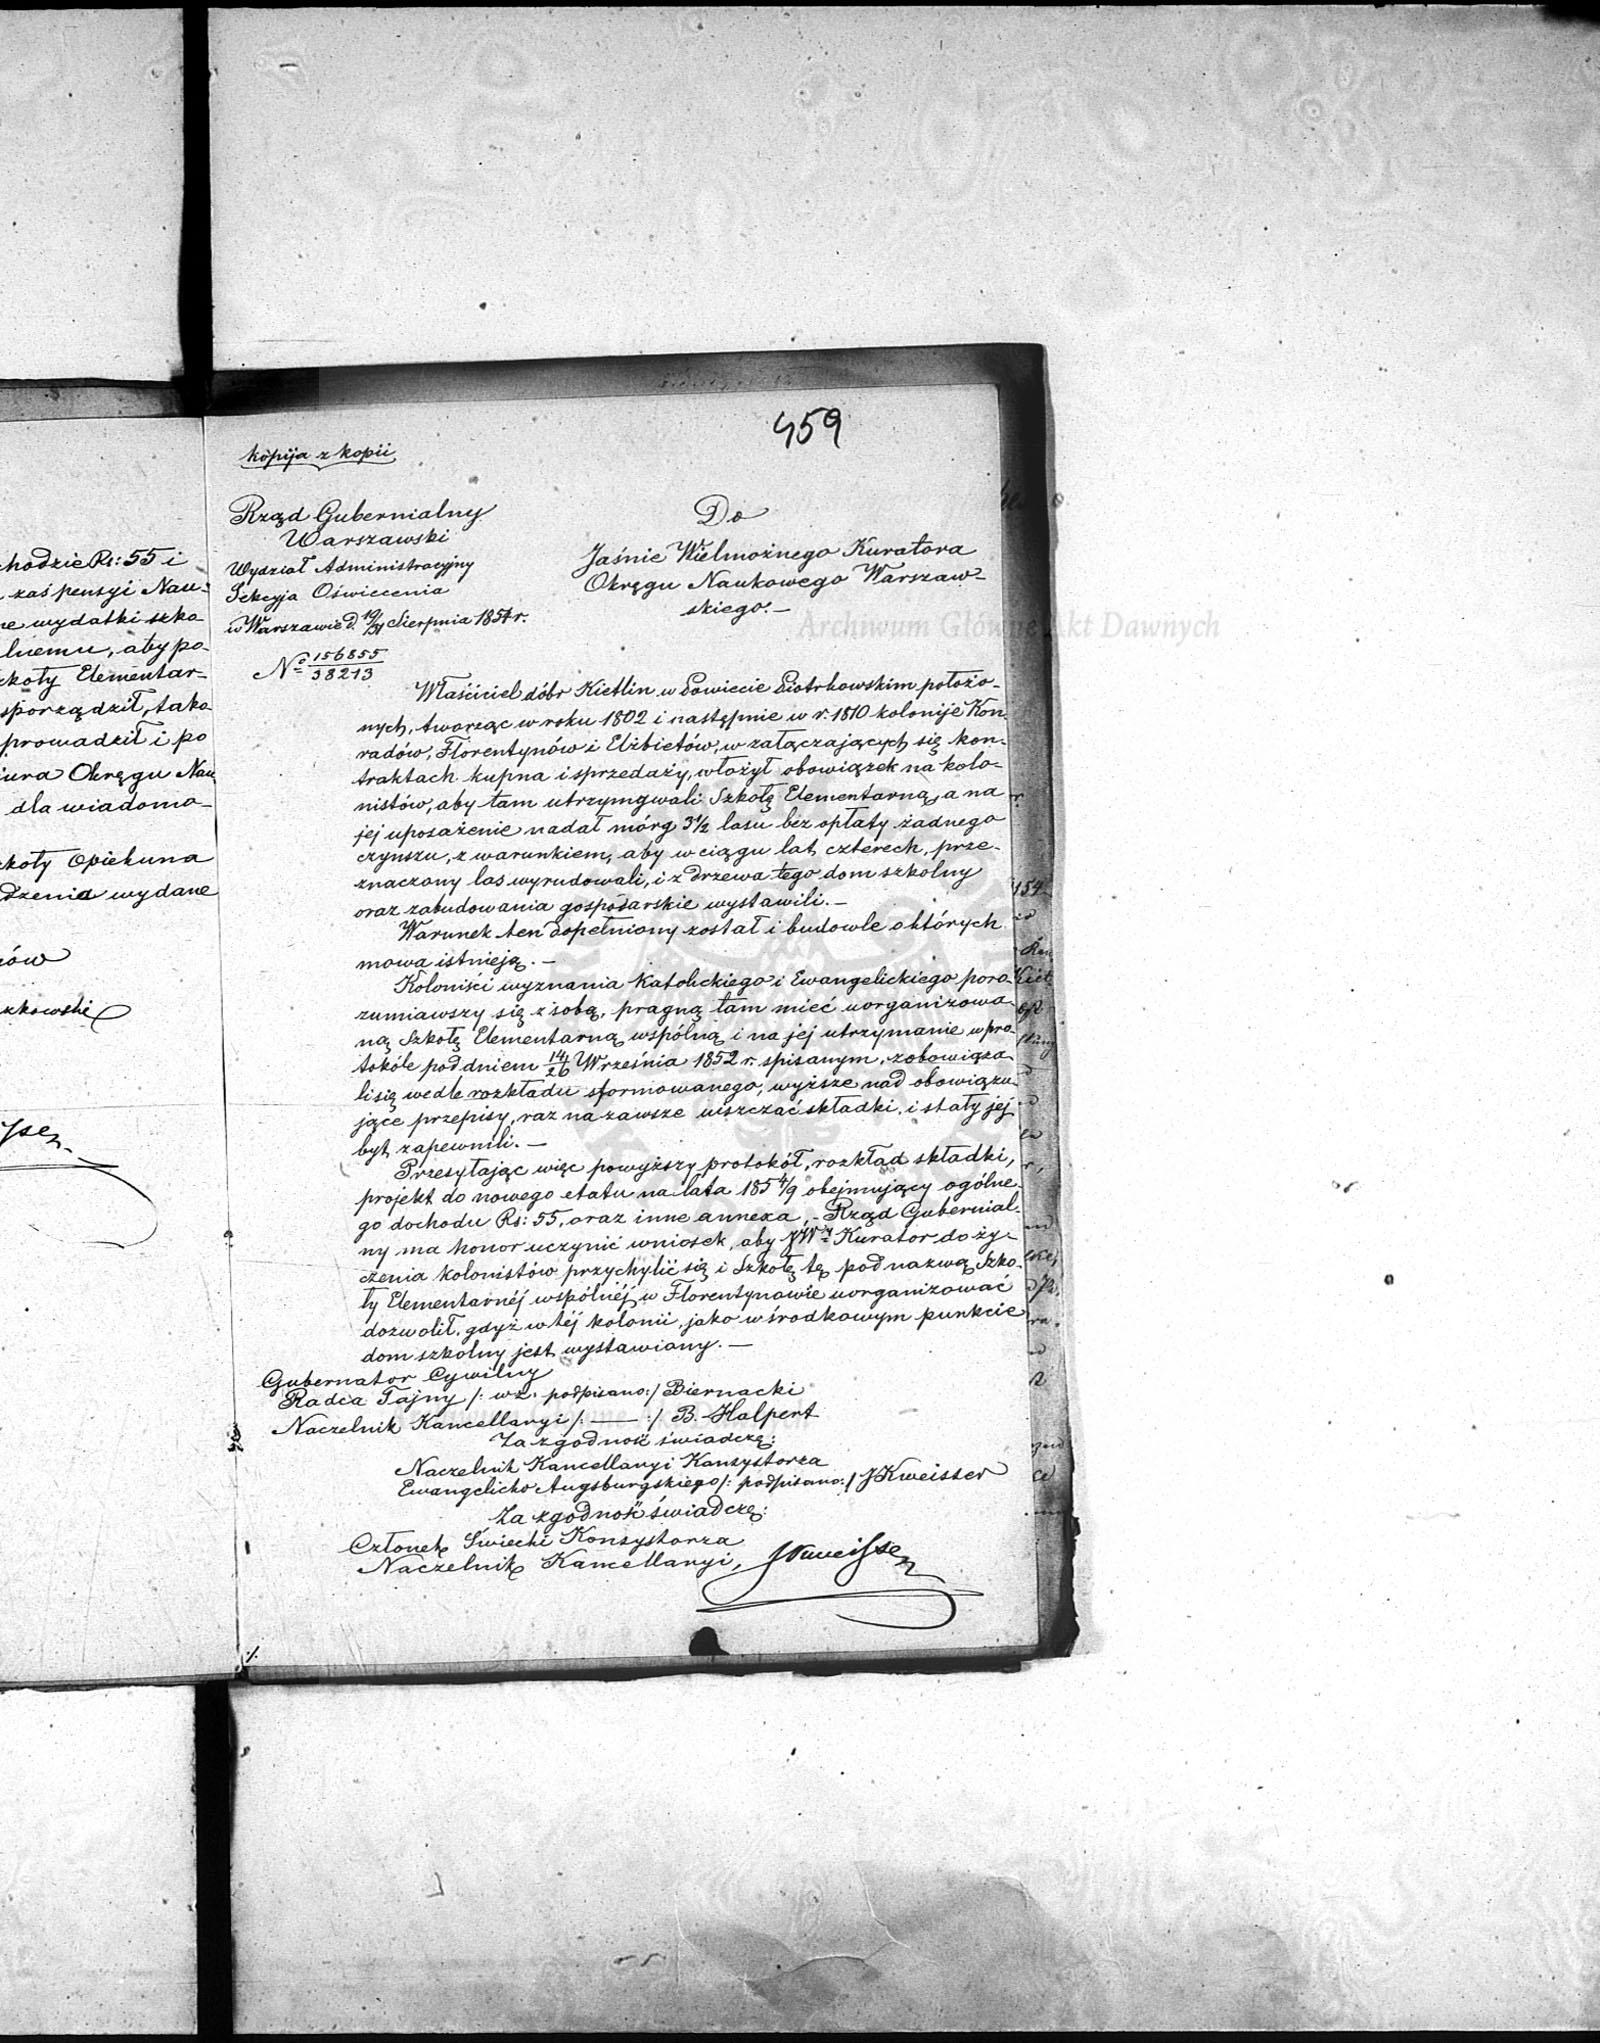 459
kopija z kopii
Rząd Gubernialny
Warszawski
Wydział Administracyjny
Sekcyja Oświecenia
w Warszawie d. 19/31 Sierpnia 1854 r.
No 156855/38213
Do
Jaśnie Wielmożnego Kuratora
Okręgu Naukowego Warszaw-
skiego.—
Archiwum Główne Akt Dawnych
Właściciel dóbr Kietlin w Powiecie Piotrkowskim położo-
nych, tworząc w roku 1802 i następnie w r. 1810 kolonije Kon-
radów, Florentynów i Elżbietów, w załączających się kon-
traktach kupna i sprzedaży, włożył obowiązek na kolo-
nistów, aby tam utrzymywali Szkołę Elementarną, a na
jej uposażenie nadał mórg 3½ lasu bez opłaty żadnego
czynszu, z warunkiem, aby w ciągu lat czterech, prze-
znaczony las wyrudowali, i z drzewa tego dom szkolny
oraz zabudowania gospodarskie wystawili.—
Warunek ten dopełniony został i budowle o których
mowa istnieją.—
Koloniści wyznania Katolickiego i Ewangelickiego poro-
zumiawszy się z sobą, pragną tam mieć uorganizowa-
ną Szkołę Elementarną wspólną i na jej utrzymanie w pro-
tokóle pod dniem 14/26 Września 1852 r. spisanym, zobowiąza-
li się wedle rozkładu sformowanego, wyższe nad obowiązu-
jące przepisy, raz na zawsze uiszczać składki, i stały jej
byt zapewnili.—
Przesyłając więc powyższy protokół, rozkład składki,
projekt do nowego etatu na lata 185 4/9 obejmujący ogólne-
go dochodu Rs: 55, oraz inne annexa,- Rząd Gubernial-
ny ma honor uczynić wniosek, aby JWny Kurator do ży-
czenia kolonistów przychylić się i Szkołę tę pod nazwą Szko-
ły Elementarnéj wspólnéj w Florentynowie uorganizować
dozwolił, gdyż w téj kolonii, jako w środkowym punkcie
dom szkolny jest wystawiony.—
Gubernator Cywilny
Radca Tajny /: wz. podpisano:/ Biernacki
Naczelnik Kancellaryi /: — :/ B. Halpert
Za zgodność świadczę:
Naczelnik Kancellaryi Konsystorza
Ewangelicko Augsburgskiego /: podpisano:/ J Kweisser
Za zgodność świadczę:
Członek Świecki Konsystorza
Naczelnik Kancellaryi,
chodzie Rs: 55 i
zaś pensyi Nau-
ne wydatki szko
lnemu, aby po-
koły Elementar-
sporządził, tako
prowadził i po
iura Okręgu Nau
dla wiadomo-
koły Opiekuna
dzenia wydane